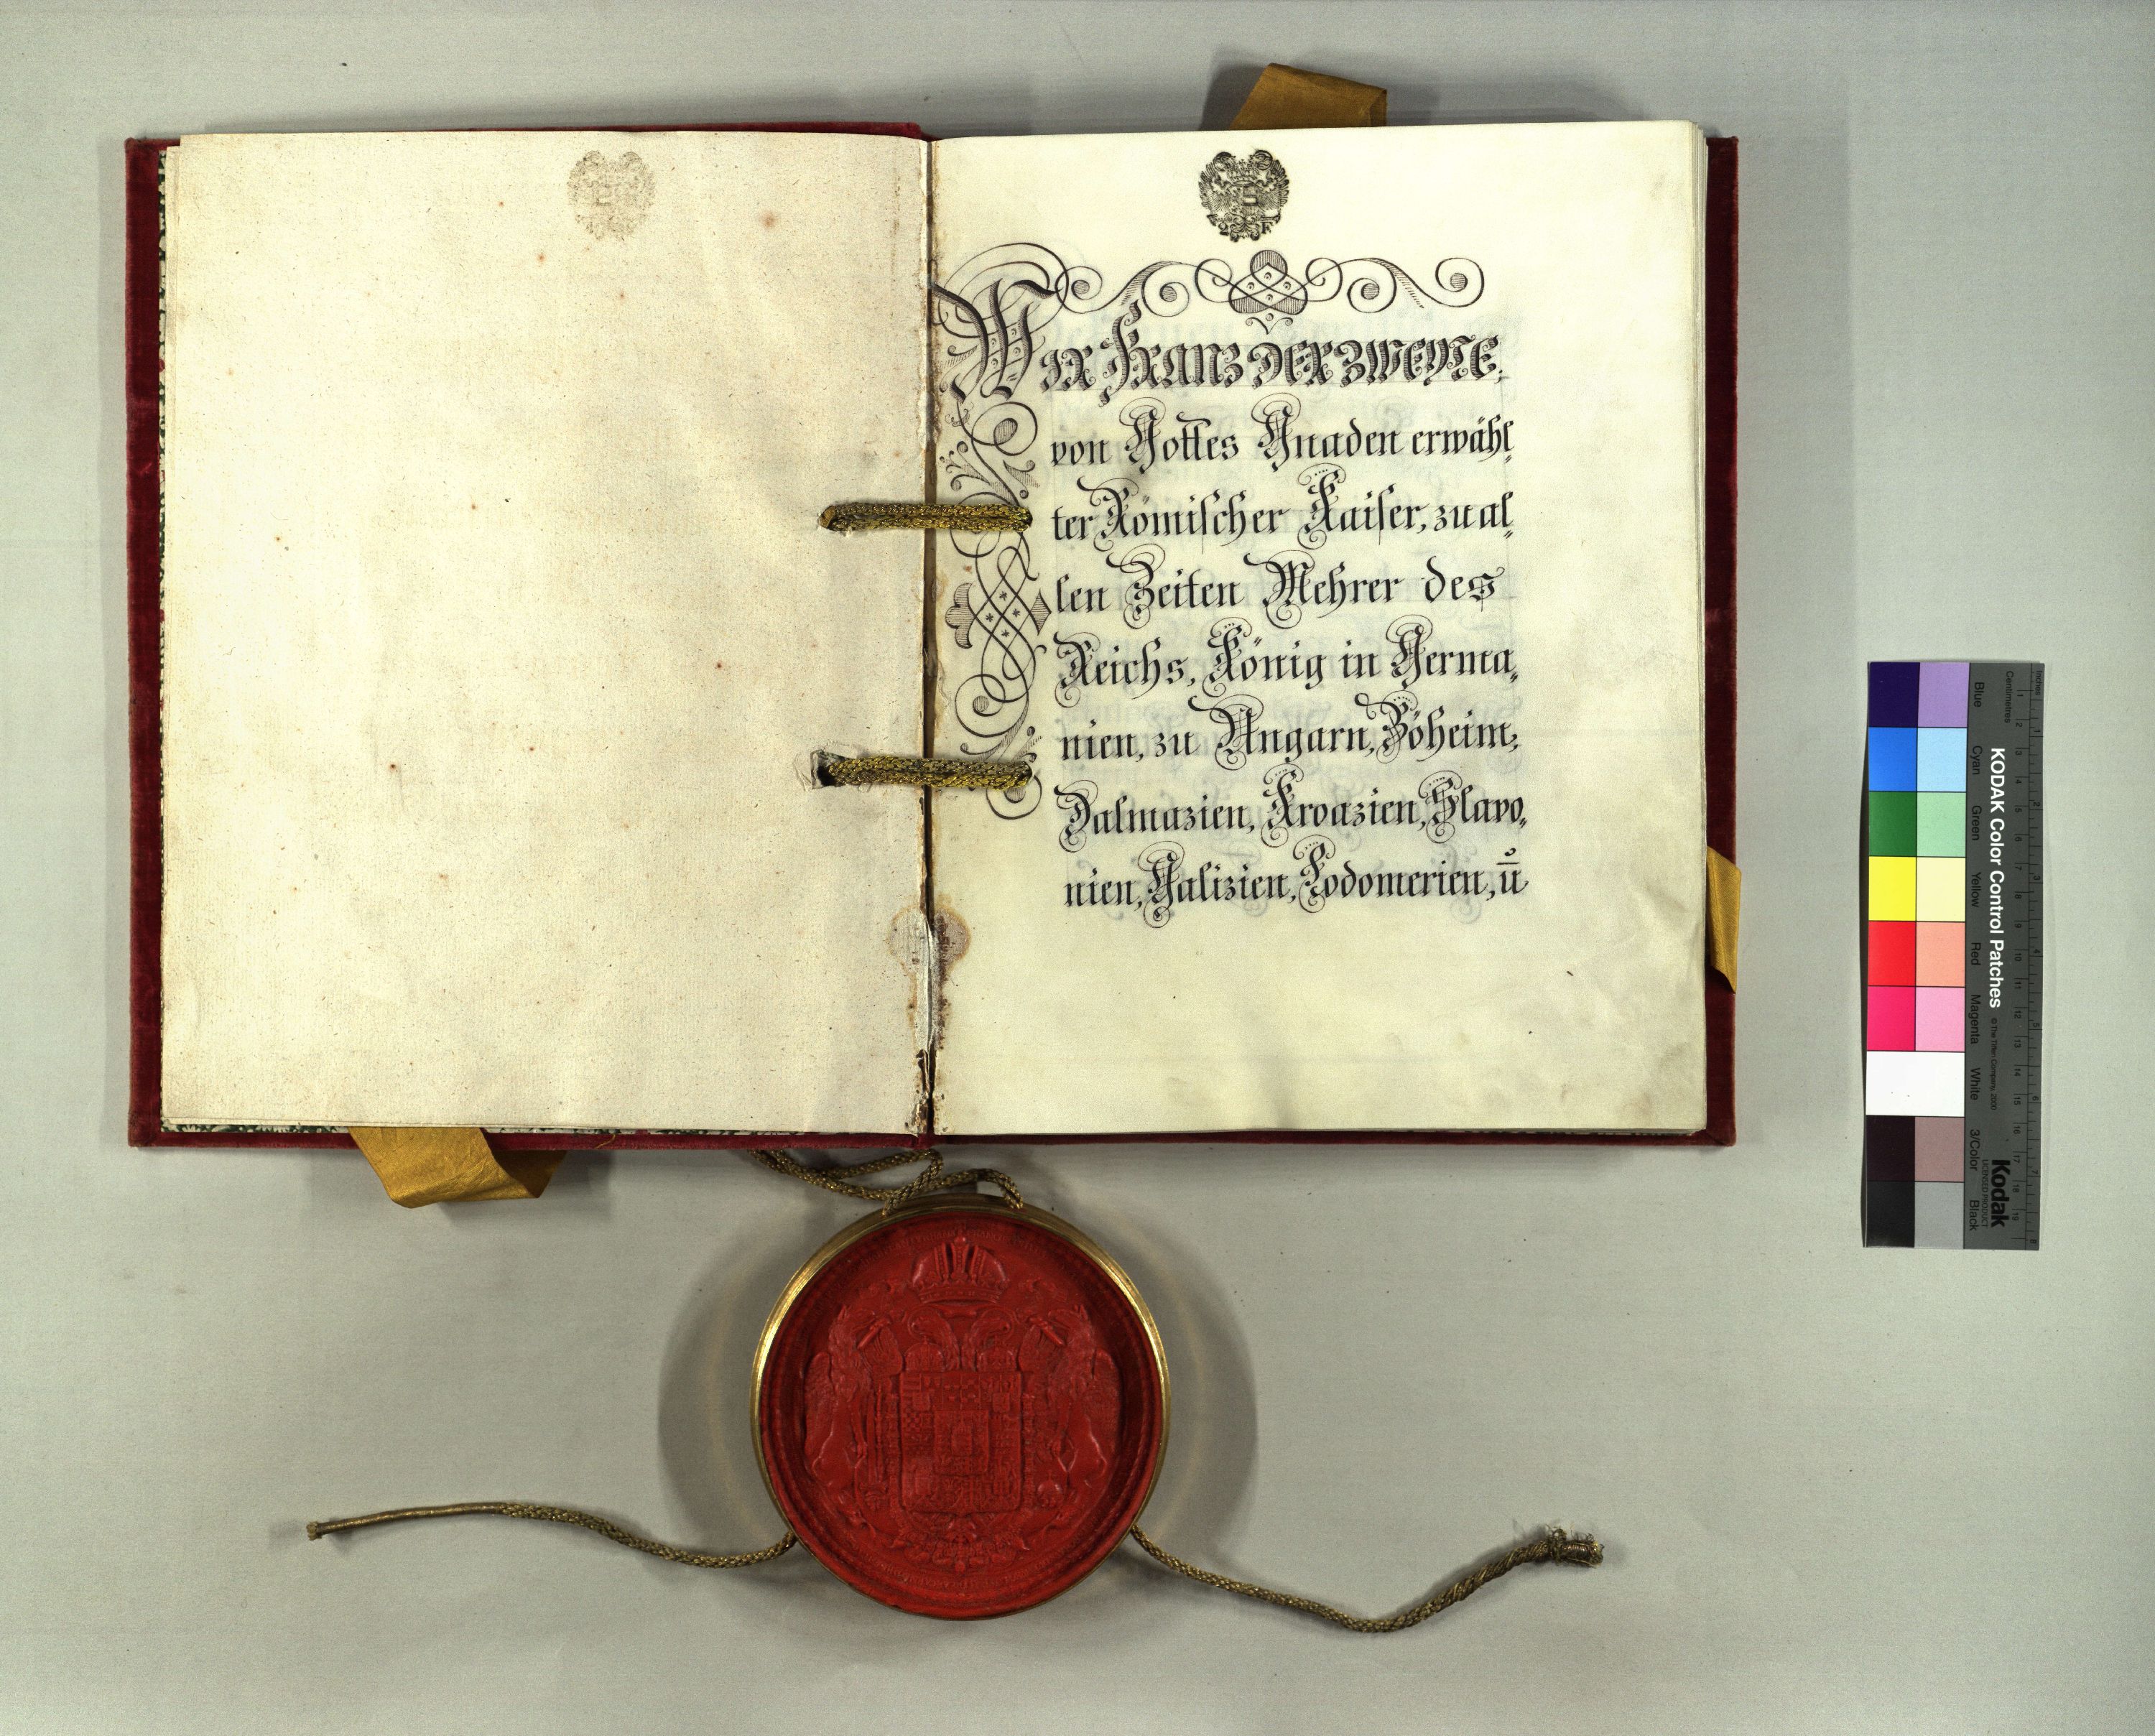 Wir Franz der zweyte,
von Gottes Gnaden erwähl,
ter Römischer Kaiser, zu al,
len Zeiten Mehrer des
Reichs, König in Germa,
nien, zu Ungarn, Böheim,
Dalmazien, Kroazien, Slavo,
nien, Galizien, Lodomerien, ū
KODAK Color Control Patches
© The Tiffen Company, 2000
Kodak
LICENSED PRODUCT
Inches
Centimetres
1 2 3 4 5 6 7 8 9 10 11 12 13 14 15 16 17 18 19
Blue Cyan Green Yellow Red Magenta White 3/Color Black